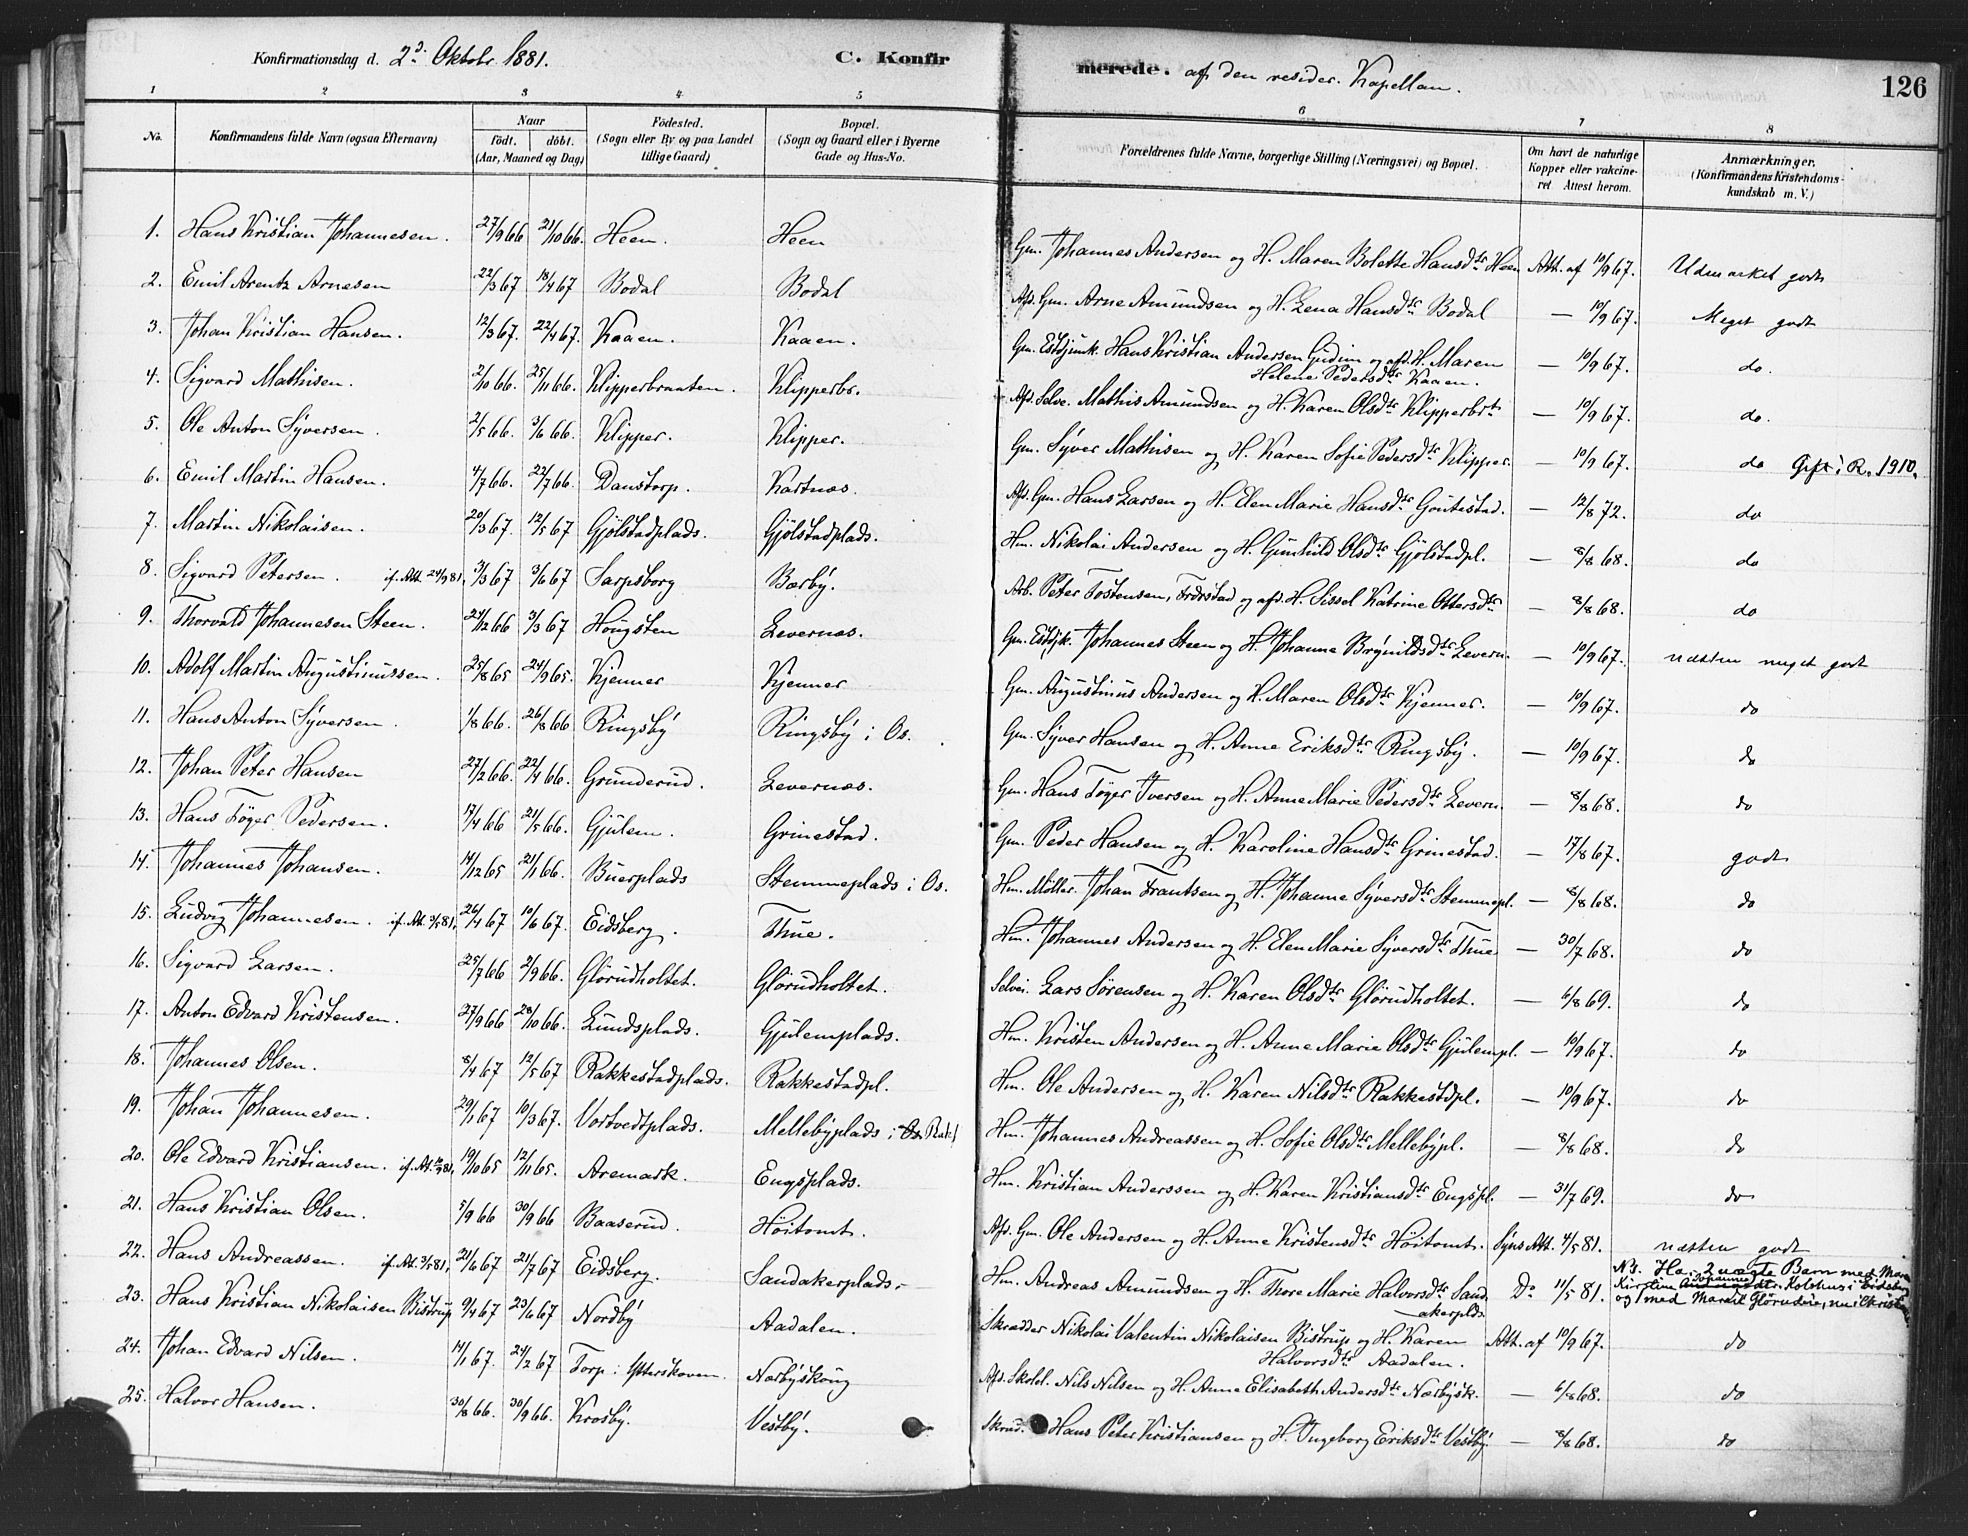 Konfirmationsdag d. 2den Oktobr 1881. C. Konfirmerede. af den resider. Kapellan. 126
1 2 3 4 5 6 7 8
No. Konfirmandens fulde Navn (ogsaa Efternavn) Naar født. døbt. (Aar, Maaned og Dag) Fødested. (Sogn eller By og paa Landet tillige Gaard) Bopæl. (Sogn og Gaard eller i Byerne Gade og Hus-No. Forældrenes fulde Navne, borgerlige Stilling (Næringsvei) og Bopæl. Om havt de naturlige Kopper eller vakcineret Attest herom. Anmærkninger. (Konfirmandens Kristendomskundskab m. V.)
1. Hans Kristian Johannesen. 27/9 66 21/10 66. Heen. Heen Gm. Johannes Andersen og H. Maren Bolette Hansdtr Heen Att. af 10/9 67. Udmærket godt
2. Emil Arentz Arnesen 22/3 67 18/4 67 Bodal Bodal Afd. Gm. Arne Amundsen og H. Lena Hansdtr Bodal — 10/9 67. Meget godt
3. Johan Kristian Hansen. 12/3 67. 22/4 67. Kaaen. Kaaen. Gm. Hans Kristian Andersen Gudim og afd. H. Maren Helene Pedersdtr Kaaen. — 10/9 67. do.
4. Sigvard Mathisen. 2/10 66. 25/11 66. Klipperbraaten. Klipperbr. Afd. Selve. Mathis Amundsen og H. Karen Olsdtr Klipperbrt — 10/9 67. do.
5. Ole Anton Syversen. 2/5 66. 3/6 66. Klipper. Klipper. Gm. Syver Mathisen og H. Karen Sofie Pedersdtr Klipper. — 10/9 67. do Gift i R. 1910.
6. Emil Martin Hansen. 4/7 66. 22/7 66. Danstorp. Kartnæs. Afd. Gm. Hans Larsen og H. Elen Marie Hansdtr Goutestad. — 12/8 72. do
7. Martin Nikolaisen. 20/3 67. 12/5 67 Gjølstadplads. Gjølstadplads. Hm. Nikolai Andersen og H. Gunhild Olsdtr Gjølstadpl. — 8/8 68. do
8. Sigvard Petersen. if. Att. 24/9 81. 31/3 67 3/6 67 Sarpsborg Bærby. Arb. Peter Tostensen, Frdrstad og afd. H. Sissel Katrine Ottersdtr — 8/8 68. do
9. Thorvald Johannesen Steen. 24/12 66 3/3 67 Hougsten Levernæs. Gm. Johannes Steen og H. Johanne Brynildsdtr Levern. — 10/9 67. næsten meget godt
10. Adolf Martin Augustinussen. 25/8 65 24/9 65. Kjenner Kjenner Gm. Augustinus Andersen og H. Maren Olsdtr Kjenner. — 10/9 67. do
11. Hans Anton Syversen. 1/8 66. 26/8 66 Ringsby Ringsby i Os. Gm. Syver Hansen og H. Anne Eriksdtr Ringsby. — 10/9 67. do
12. Johan Peter Hansen 27/2 66. 22/4 66. Grunderud. Levernæs. Gm. Hans Tøger Iversen og H. Anne Marie Pedersdtr Levern. — 8/8 68. do
13. Hans Tøger Pedersen. 17/4 66 21/5 66. Gjulem. Grinestad. Gm. Peder Hansen og H. Karoline Hansdtr Grinestad. — 17/8 67. godt
14. Johannes Johansen. 14/12 65 21/1 66. Buerplads Stemmeplads i Os. Hm. Møller. Johan Frantsen og H. Johanne Syversdtr Stemmepl. — 8/8 68. do
15. Ludvig Johannesen. if. Att. 3/5 81, 26/4 67 10/6 67. Eidsberg. Thue. Hm. Johannes Andersen og H. Elen Marie Syversdtr Thue — 30/7 68. do
16. Sigvard Larsen. 25/7 66 2/9 66. Glørudholtet. Glørudholtet. Selvei. Lars Sørensen og H. Karen Olsdtr Glørudholtet. — 6/8 69. do
17. Anton Edvard Kristensen. 27/9 66 28/10 66. Lundsplads. Gjulemplads. Hm. Kristen Andersen og H. Anne Marie Olsdtr Gjulempl. — 10/9 67. do
18. Johannes Olsen. 8/4 67 12/5 67 Rakkestadplads. Rakkestadpl. Hm. Ole Andersen og H. Karen Nilsdtr Rakkestdpl. — 10/9 67. do
19. Johan Johannesen. 29/1 67 10/3 67. Vortvedtplads. Mellebyplads i Os Rakk Hm. Johannes Andreassen og H. Sofie Olsdtr Mellebypl. — 8/8 68. do
20. Ole Edvard Kristiansen. if. Att. 81, 19/10 65 12/11 65. Aremark. Engsplads. Hm. Kristian Anderssen og H. Karen Kristiansdtr Engspl. — 31/7 69. do
21. Hans Kristian Olsen. 5/9 66 30/9 66 Baaserud. Høitomt. Afd. Gm. Ole Andersen og H. Anne Kristensdtr Høitomt. Syns Att. 4/5 81. næsten godt
22. Hans Andreassen. if. Att. 3/5 81, 21/6 67 21/7 67 Eidsberg. Sandakerplads. Hm. Andreas Amundsen og H. Thore Marie Halvorsdtr Sandakerplds. Do 11/5 81. NB. Har 2 uægte Barn med Maren Kirstine Johannesdtr. Kolshus i Eidsberg og 1 med Glørudeie, nu i
23. Hans Kristian Nikolaisen Bistrup 9/4 67 23/6 67 Nordby Aadalen. Skrædder Nikolai Valentin Nikolaisen Bistrup og H. Karen Halvorsdtr Aadalen. Att. af 10/9 67. do
24. Johan Edvard Nilsen. 14/1 67. 24/2 67 Torp i Ytterskoven Nærbyskoug Afd. Skolel. Nils Nilsen og H. Anne Elisabeth Andersdtr Nærbysk. — 6/8 68. do
25. Halvor Hansen. 30/8 66. 30/9 66. Krosby. Vestby. Skræd. Hans Peter Kristiansen og H. Ingeborg Eriksdtr Vestby — 8/8 68. do